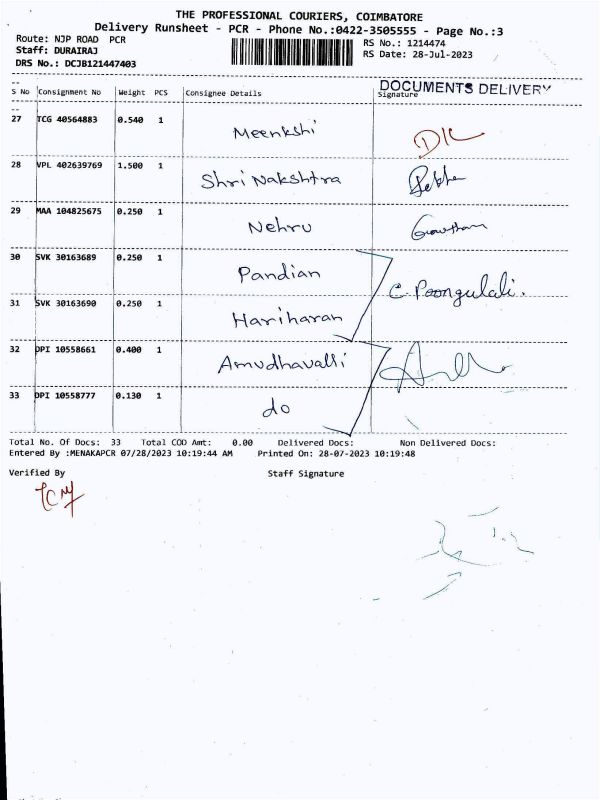 THE PROFESSIONAL COURIERS, COIMBATORE
Delivery Runsheet - PCR - Phone No.:0422-3505555 - Page No.:3
Route: NJP ROAD PCR
RS No.: 1214474
Staff: DURAIRAJ
RS Date: 28-Jul-2023
DRS No.: DCJB121447403
DOCUMENTS DELIVERY
S No Consignment No Weight PCS Consignee Details Signature
27 TCG 40564883 0.540 1 Meenkshi
28 VPL 402639769 1.500 1 Shri Nakshtra
29 MAA 104825675 0.250 1 Nehru Gowtham
30 SVK 30163689 0.250 1 Pandian
C. Poongulali.
31 SVK 30163690 0.250 1 Hariharan
32 DPI 10558661 0.400 1 Amudhavalli
33 DPI 10558777 0.130 1 do
Total No. Of Docs: 33 Total COD Amt: 0.00 Delivered Docs: Non Delivered Docs:
Entered By :MENAKAPCR 07/28/2023 10:19:44 AM Printed On: 28-07-2023 10:19:48
Verified By Staff Signature